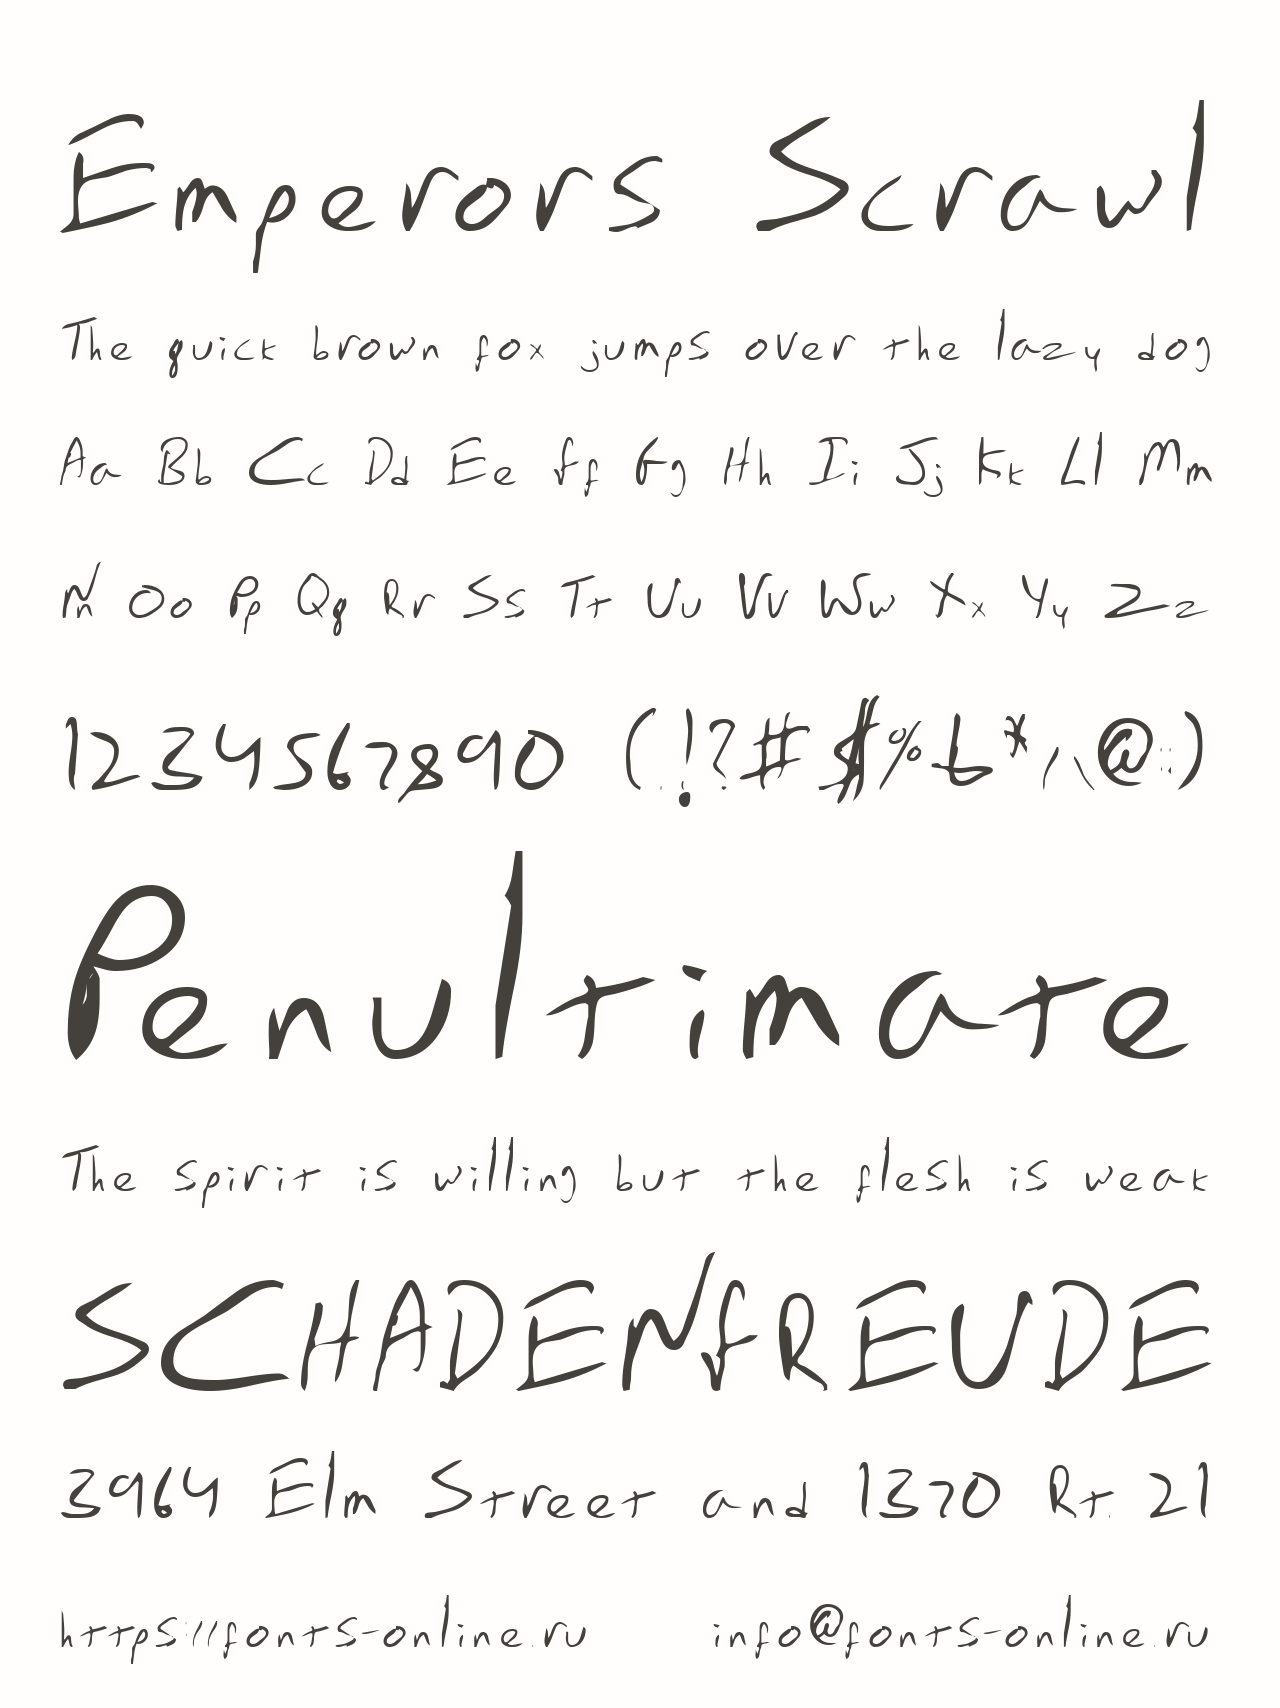 Emperors Scrawl
The quick brown fox jumps over the lazy dog
Aa Bb Cc Dd Ee Ff Gg Hh Ii Jj Kk Ll Mm
Nn Oo Pp Qq Rr Ss Tt Uu Vv Ww Xx Yy Zz
1234567890 (.!?#$%&*,\@:;)
Penultimate
The spirit is willing but the flesh is weak
SCHADENFREUDE
3964 Elm Street and 1370 Rt. 21
https://fonts-online.ru info@fonts-online.ru